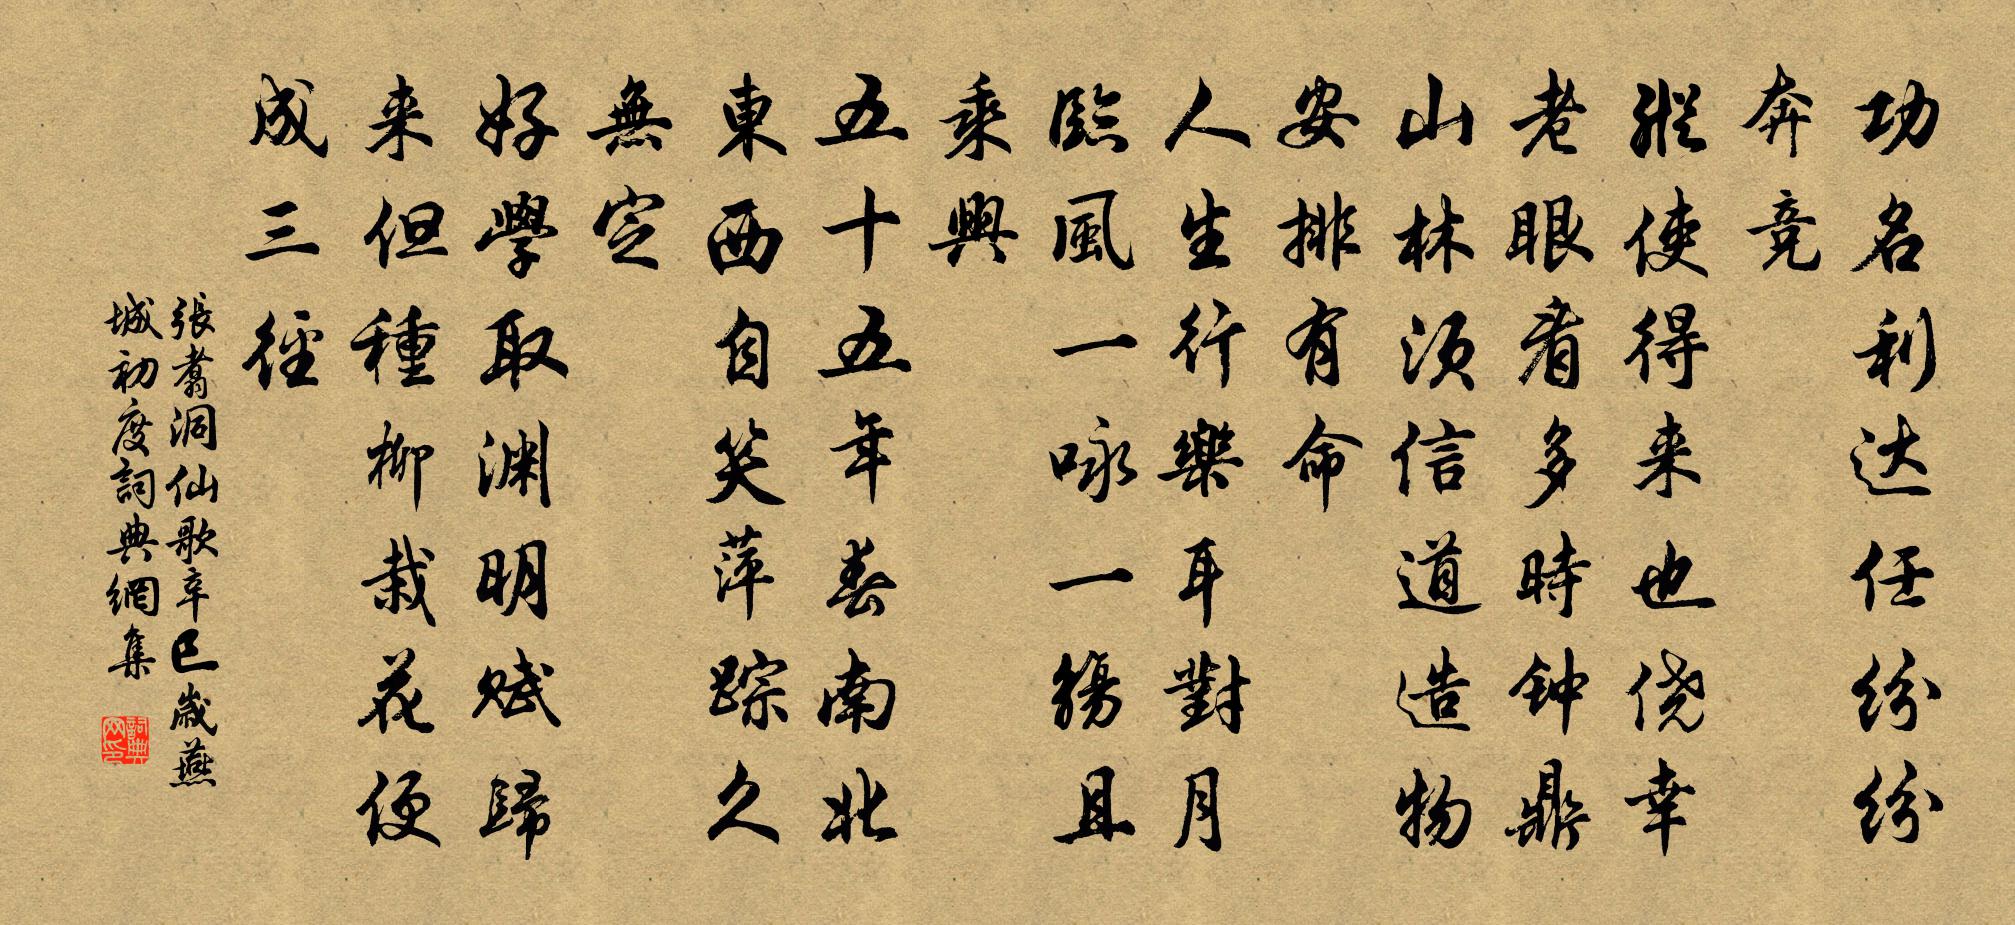 功名利达任纷纷
奔竞
縱使得来也侥幸
老眼看多時钟鼎
山林须信道造物
安排有命
人生行樂耳對月
臨風一咏一觴且
乘興
五十五年春南北
東西自笑萍踪久
無定
好學取渊明赋歸
来但種柳栽花便
成三徑
張翥洞仙歌辛巳歲燕
城初度詞典網集
詞典
网印